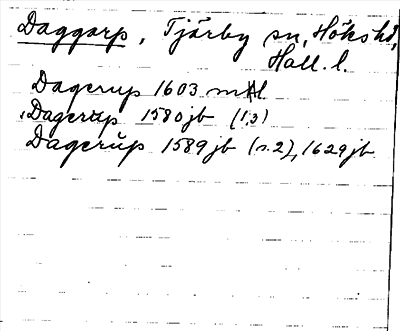 Daggarp, Tjärby sn, Höks hd,
Hall. l.
Dagerup 1603 mtl
Dagerup 1580 jb (1,3)
Dagerup 1589 jb (s. 2), 1629 jb